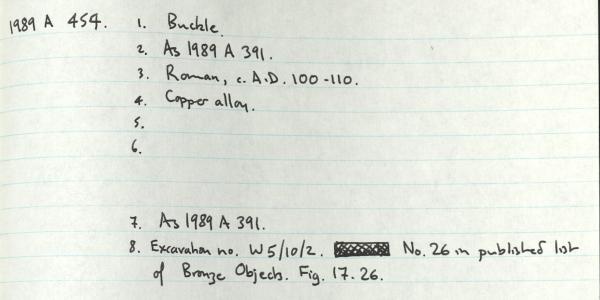 1989 A 454. 1. Buckle.
2. As 1989 A 391.
3. Roman, c. A.D. 100-110.
4. Copper alloy.
5.
6.
7. As 1989 A 391.
8. Excavation no. W5/10/2. No. 26 in published list
of Bronze Objects. Fig. 17.26.